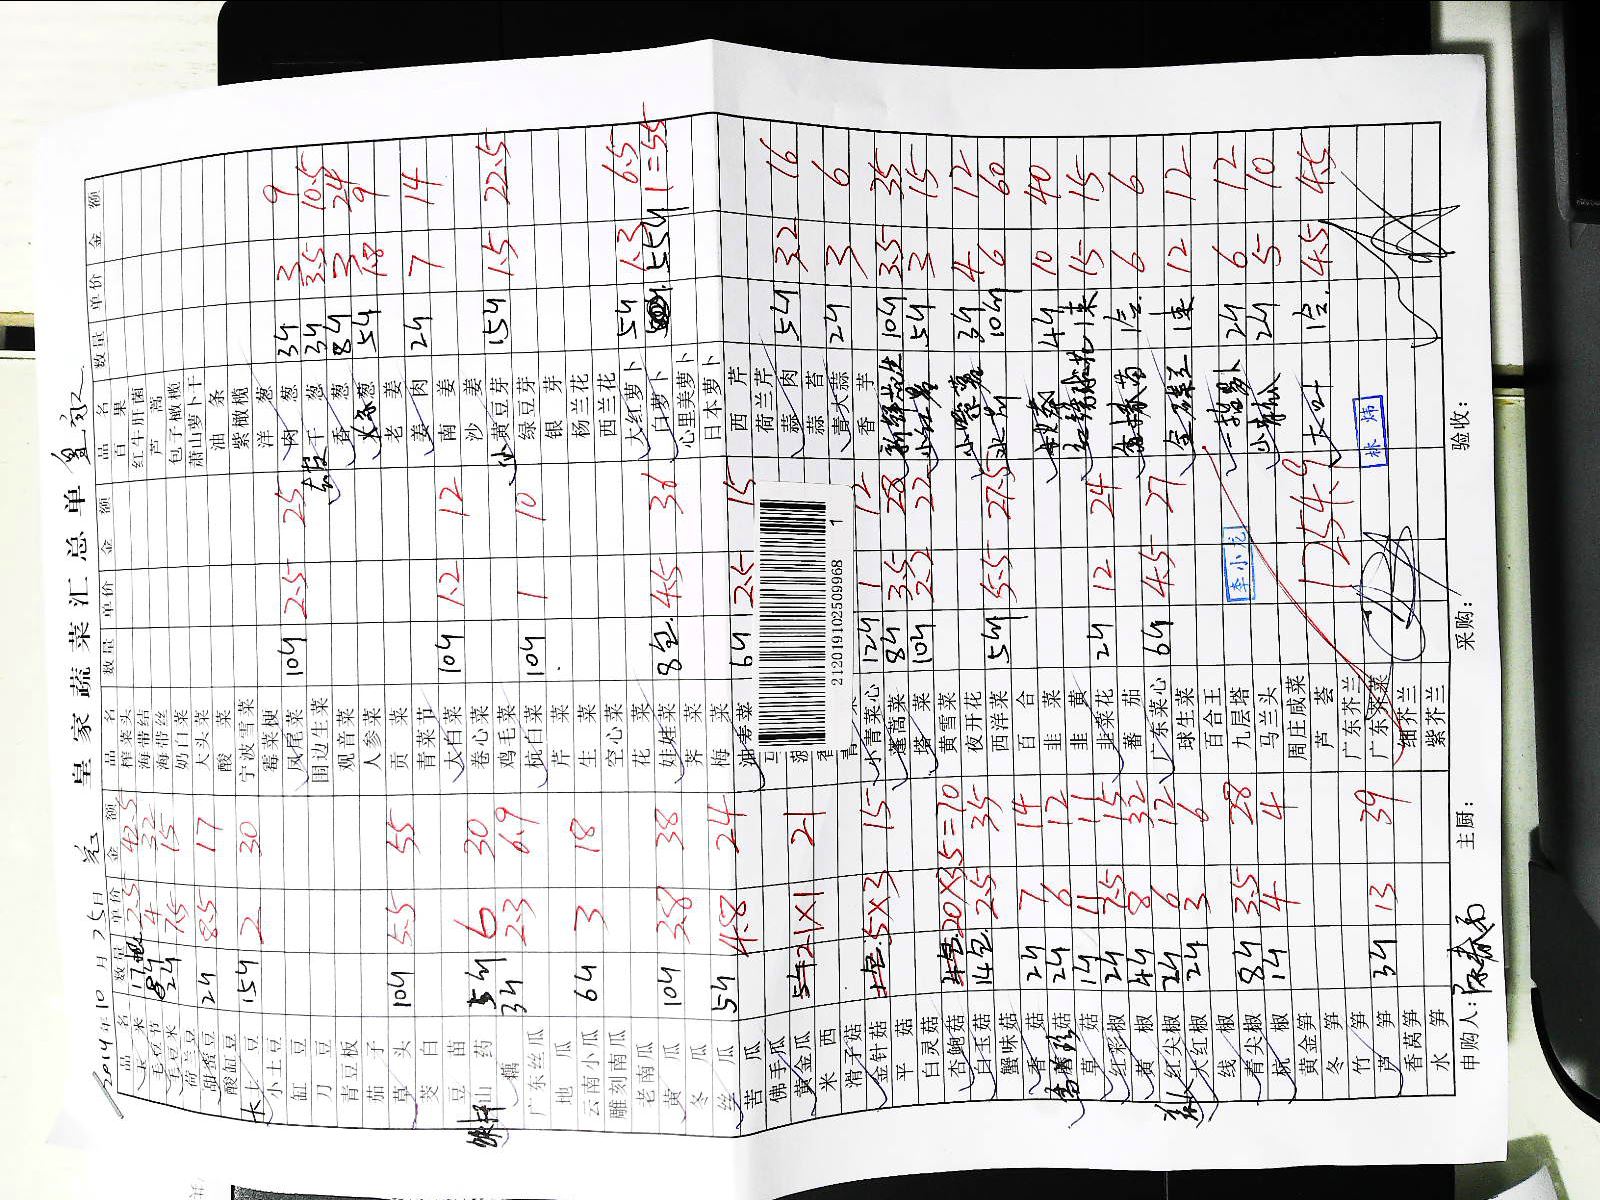 皇家蔬菜汇总单
2014年10月25日
品名 数量 单价 金额 品名 数量 单价 金额 品名 数量 单价 金额
玉米 17 2.5 42.5 榨菜头 百果
毛豆节 8斤 4 32 海带结 红牛肝菌
毛豆米 2斤 7.5 15 海带丝 芦蒿
荷兰豆 奶白菜 包子橄榄
甜蜜豆 2斤 8.5 17 大头菜 萧山萝卜干
酸缸豆 酸菜 油条
土豆 15斤 2 30 宁波雪菜 紫橄榄
小土豆 霉菜梗 洋葱 3斤 3 9
缸豆 凤尾菜 10斤 2.5 25 肉葱 3斤 3.5 10.5
刀豆 围边生菜 干葱 8斤 3 24
青豆板 观音菜 香葱 5斤 1.8 9
茄子 人参菜 大京葱
草头 10斤 5.5 55 贡菜 老姜 2斤 7 14
茭白 青菜节 姜肉
豆苗 大白菜 10斤 1.2 12 南姜
山药 5斤 6 30 卷心菜 沙姜 15斤 1.5 22.5
藕 3斤 2.3 6.9 鸡毛菜 黄豆芽
广东丝瓜 杭白菜 10斤 1 10 绿豆芽
地瓜 芹菜 银芽
云南小瓜 6斤 3 18 生菜 杨兰花
雕刻南瓜 空心菜 西兰花
老南瓜 花菜 大红萝卜 5斤 1.3 6.5
黄瓜 10斤 3.8 38 娃娃菜 8包 4.5 36 白萝卜 55斤 1=55
冬瓜 荠菜 心里美萝卜
丝瓜 5斤 4.8 24 梅菜 日本萝卜
苦瓜 油麦菜 6斤 2.5 15 西芹
佛手瓜 荷兰芹
黄金瓜 21×1 21 蒜肉 5斤 3.2 16
米西 蒜苔
滑子菇 青大蒜 2斤 3 6
金针菇 5×3 15 小青菜心 12斤 1 12 香芋
平菇 蓬蒿菜 8斤 3.5 28 10斤 3.5 35
白灵菇 塔菜 10斤 2.2 22 5斤 3 15
杏鲍菇 20×3.5=70 黄雪菜 3斤 4 12
白玉菇 14包 2.5 35 夜开花 5斤 5.5 27.5 10斤 6 60
蟹味菇 西洋菜
香菇 2斤 7 14 百合 4斤 10 40
2斤 6 12 韭菜 1束 15 15
草菇 1斤 11 11 韭黄
红彩椒 2斤 7.5 15 韭菜花 2斤 12 24 1盒 6 6
黄椒 4斤 8 32 番茄
红尖椒 2斤 6 12 广东菜心 6斤 4.5 27 1束 12 12
大红椒 2斤 3 6 球生菜
线椒 百合王 2斤 6 12
青尖椒 8斤 3.5 28 九层塔 2斤 5 10
杭椒 1斤 4 4 马兰头
黄金笋 周庄咸菜 大叶 1盒 45 45
冬笋 芦荟
竹笋 广东芥兰
芦笋 3斤 13 39 广东芥菜
香莴笋 细芥兰
水笋 紫芥兰
1254.9
李小龙
林炜
212019102509968 1
申购人: 主厨: 采购: 验收: